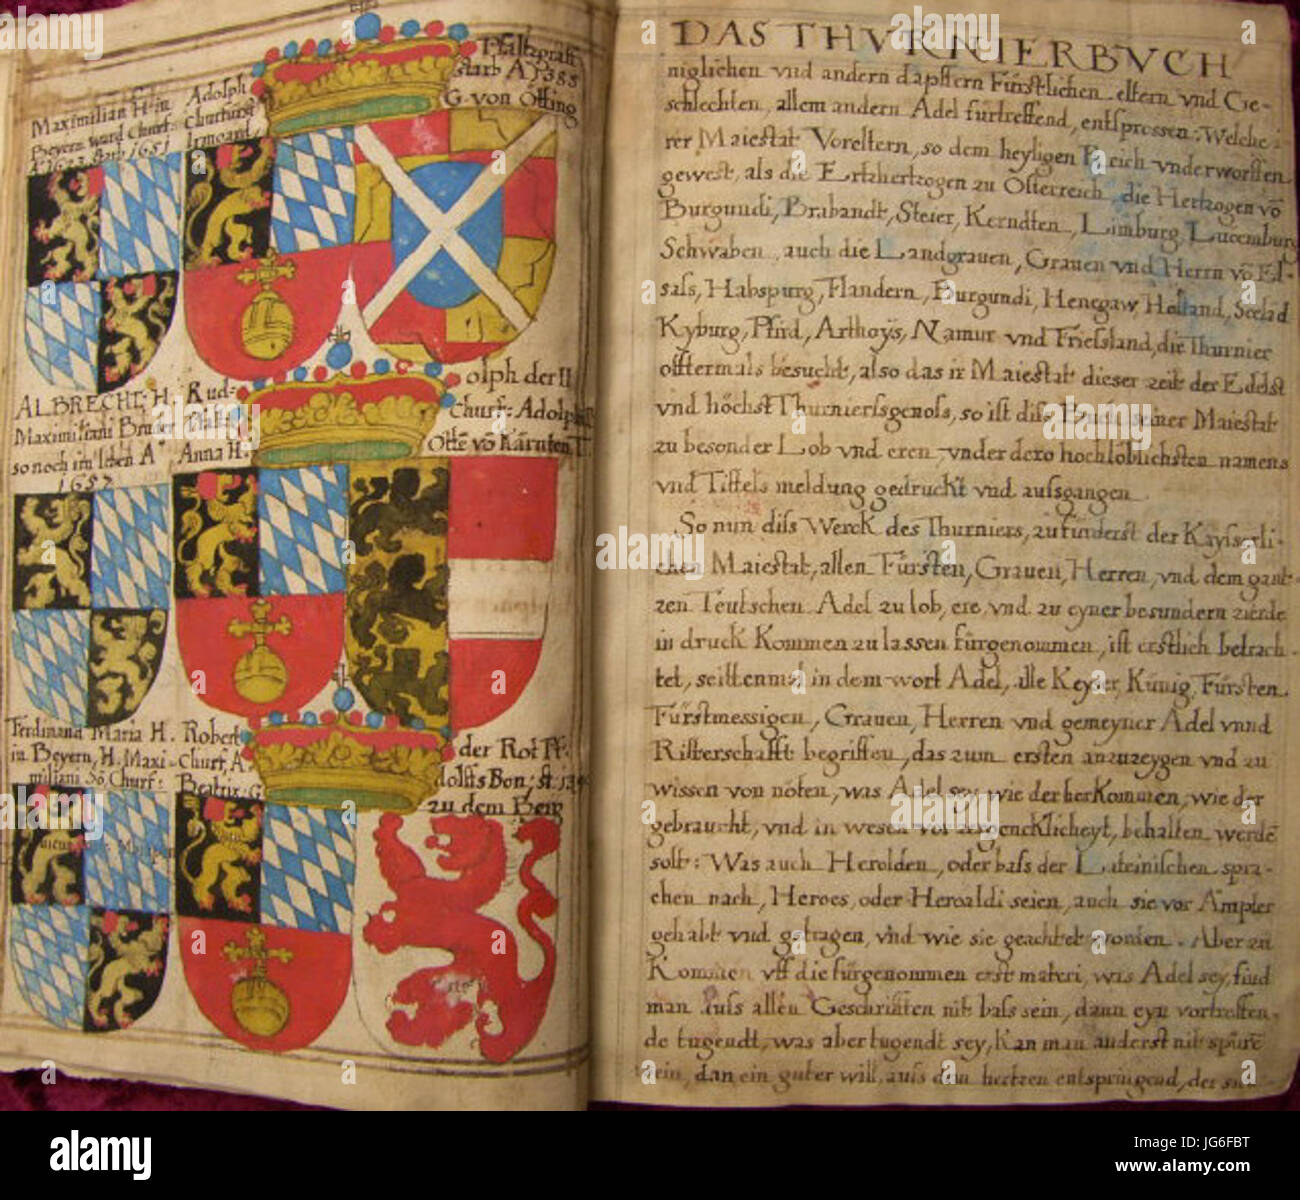 Maximilian H. in
Beyern ward Churf:
A. 1623. starb 1651
Adolph
Churfürst
Irmgard
Pfaltzgraff
starb A.
G. von Ötting
ALBRECHT. H.
Maximiliani Bruder
so noch im leben A°
1657
Rud-
Anna H.
olph der II
Churf: Adolph
Otte vō Kärnten T.
Ferdinand Maria H.
in Beyern, H. Maxi-
miliani Sō Churf:
Robert
Churf, A-
Beatrix. G
der Rot Pf:
dolffs Son; st. 139
zu dem Berg
DAS THVRNIERBVCH
niglichen vnd andern dapffern Fürstlichen eltern vnd Ge-
schlechten, allem andern Adel fürtreffend, entsprossen: Welche
rer Maiestat Voreltern, so dem heyligen Reich vnderworffen
gewest, als die Ertzhertzogen zu Österreich, die Hertzogen vō
Burgundi, Brabandt, Steier, Kerndten, Limburg, Lucemburg
Schwaben, auch die Landgrauen, Grauen vnd Herrn vō El-
sals, Habspurg, Flandern, Burgundi, Henegaw, Holland, Seelād
Kyburg, Pfird, Arthoÿs, Namur vnd Friessland, die Thurnier
offtermals besucht, also das ir Maiestat dieser zeit der Edelst
vnd höchst Thurniersgenoss, so ist diss Buch seiner Maiestat
zu besonder Lob vnd eren, vnder dero hochloblichsten namens
vnd Tittels meldung gedruckt vnd aussgangen
So nun diss Werck des Thurniers, zuförderst der Kayserli-
chen Maiestat, allen Fürsten, Grauen, Herren, vnd dem gant-
zen Teutschen Adel zu lob, ere, vnd zu eyner besundern zierde
in druck Kommen zu lassen fürgenommen, ist erstlich betrach-
tet, seittenmal in dem wort Adel, alle Keyser, Künig, Fürsten
Fürstmessigen, Grauen, Herren vnd gemeyner Adel vnnd
Ritterschafft begriffen, das zum ersten anzuzeygen vnd zu
wissen von nöten, was Adel sey, wie der herkommen, wie der
gebraucht, vnd in wesen vnd behalten werdē
solt: Was auch Herolden, oder bass der Lateinischen spra-
chen nach, Heroes, oder Heroaldi seien, auch sie vor Ampter
gehabt vnd getragen, vnd wie sie geachtet worden. Aber zu
Kommen vff die fürgenommen erst materi, was Adel sey, find
man auss allen Geschrifften nit bass sein, dann eyn vortreffen-
de tugendt, was aber tugendt sey, Kan man anderst nit spürē
sein, dan ein guter will, auss dem hertzen entspringend, der sich
alamy
a
alamy
Image ID: JG6FBT
www.alamy.com